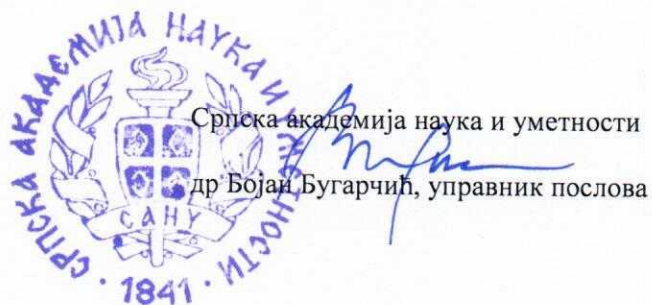 СРПСКА АКАДЕМИЈА НАУКА И УМЕТНОСТИ
САНУ
· 1841 ·
Српска академија наука и уметности
др Бојан Бугарчић, управник послова